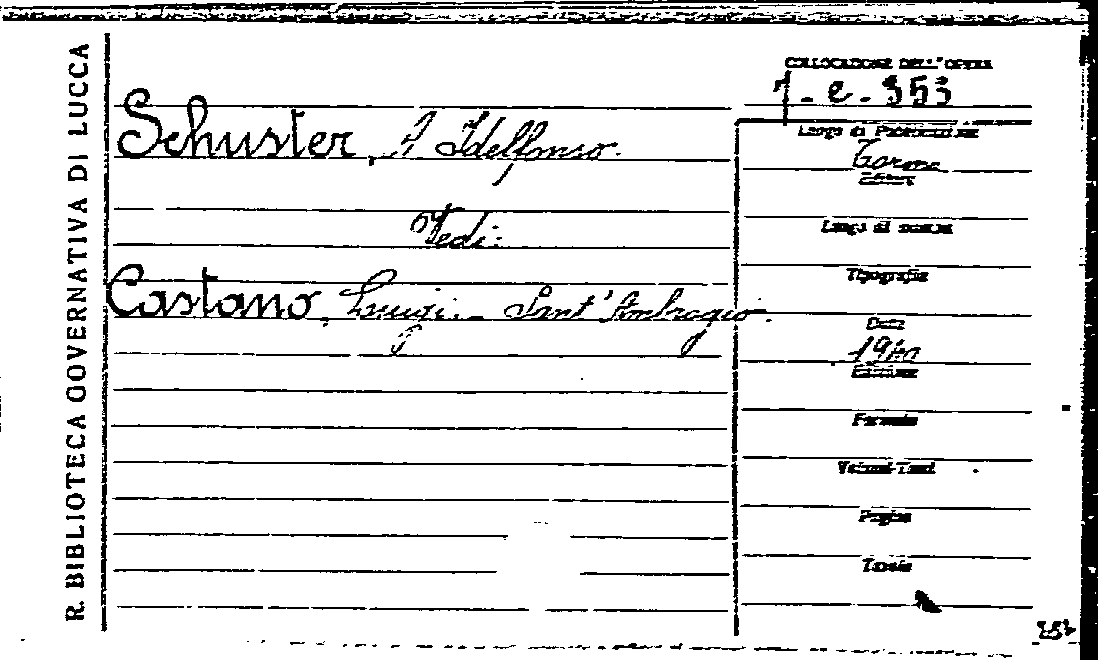 R. BIBLIOTECA GOVERNATIVA DI LUCCA
COLLOCAZIONE DELL'OPERA
7-e-353
Schuster, A Idelfonso.
Luogo di Pubblicazione
Torino
Editore
Vedi:
Luogo di stampa
Tipografia
Castano, Luigi. - Sant'Ambrogio.
Data
1940
Edizione
Formato
Volumi-Tomi
Pagine
Tavole